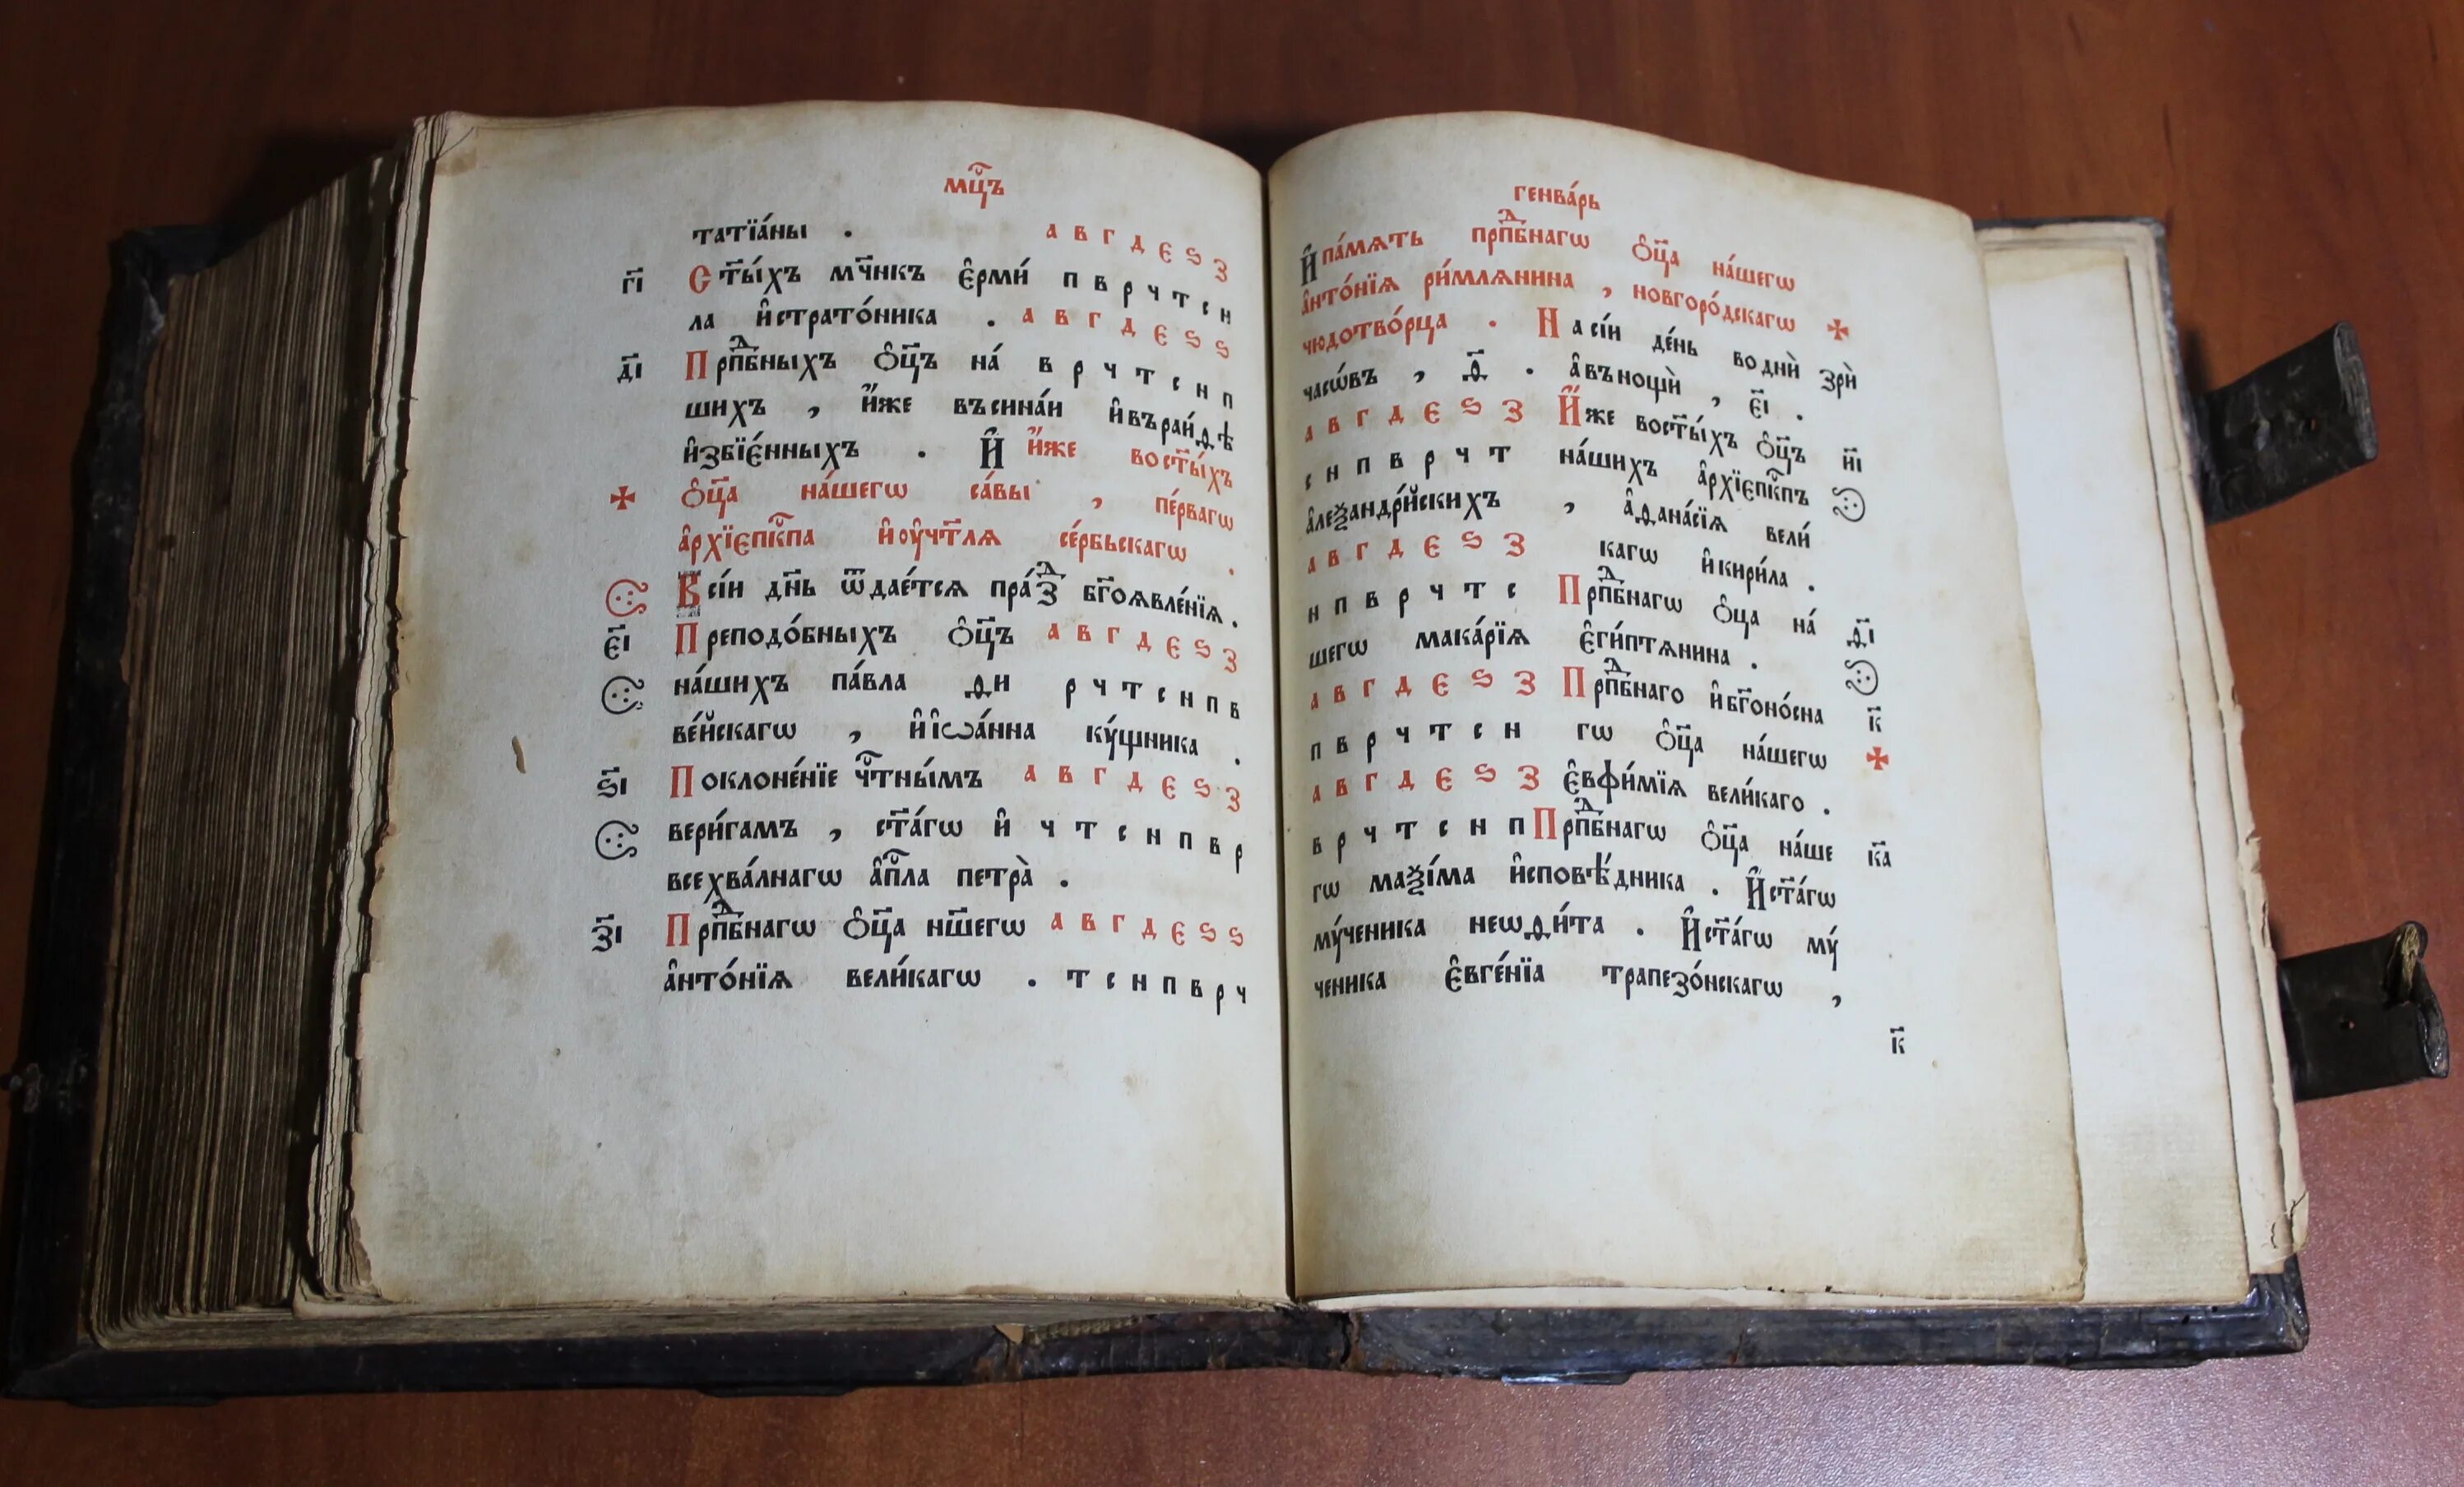 мц҃ъ
татїа́ны . а в г д є ѕ з
г҃і С т҃ы́хъ мч҃нкъ є҆рми́ п в р ч т с н
ла и҆стратѡ́ника . а в г д є ѕ ѕ
д҃і Прпⷣбныхъ ѻ҆ц҃ъ на́ в р ч т с н п
шихъ , и҆́же въсина́и и҆въраи́ѳѣ
и҆збїе́нныхъ . И҆ и҆́же вост҃ы́хъ
✠ ѻ҆ц҃а на́шегѡ са́вы , пе́рвагѡ
а҆рхїепк҇па и҆оу҆чт҃лѧ се́рбьскагѡ .
Всі́и дн҃ь ѿдае́тсѧ пра́зⷣ бг҃оѧвле́нїѧ .
є҃і Преподо́бныхъ ѻ҆ц҃ъ а в г д є ѕ з
на́шихъ па́вла ѳи р ч т с н п в
ве́йскагѡ , и҆і҆ѡа́нна ку́щника .
ѕ҃і Поклоне́нїе чⷭ҇тны́мъ а в г д є ѕ з
вери́гамъ , ст҃а́гѡ и҆ ч т с н п в р
всехва́лнагѡ а҆пⷭ҇ла петра̀ .
з҃і Прпⷣбнагѡ ѻ҆ц҃а нш҃егѡ а в г д є ѕ ѕ
а҆нто́нїѧ вели́кагѡ . т с н п в р ч
генва́рь
И҆ па́мѧть прпⷣбнагѡ ѻ҆ц҃а на́шегѡ
а҆нто́нїѧ ри́млѧнина , новгоро́дскагѡ ✠
чюдотво́рца . Н а сі́и де́нь во днѝ зрѝ
часѡ́въ , ѳ҃ . а҆въ нощѝ , є҃і .
а в г д є ѕ з И҆́же вост҃ы́хъ ѻ҆ц҃ъ и҃і
с н п в р ч т на́шихъ а҆рхїепк҇пъ
а҆леѯандрі́йскихъ , а҆ѳана́сїѧ вели́
а в г д є ѕ з кагѡ и҆кири́ла .
н п в р ч т с Прпⷣбнагѡ ѻ҆ц҃а на́ ѳ҃і
шегѡ мака́рїѧ є҆ги́птѧнина .
а в г д є ѕ з Прпⷣбнаго и҆бг҃оно́сна к҃
п в р ч т с н гѡ ѻ҆ц҃а на́шегѡ ✠
а в г д є ѕ з є҆вфи́мїѧ вели́каго .
в р ч т с н п Прпⷣбнагѡ ѻ҆ц҃а на́ше к҃а
гѡ маѯі́ма и҆сповѣ́дника . И҆ст҃а́гѡ
му́ченика неѡѳи́та . И҆ст҃а́гѡ му́
ченика є҆вге́нїа трапезо́нскагѡ ,
к҃